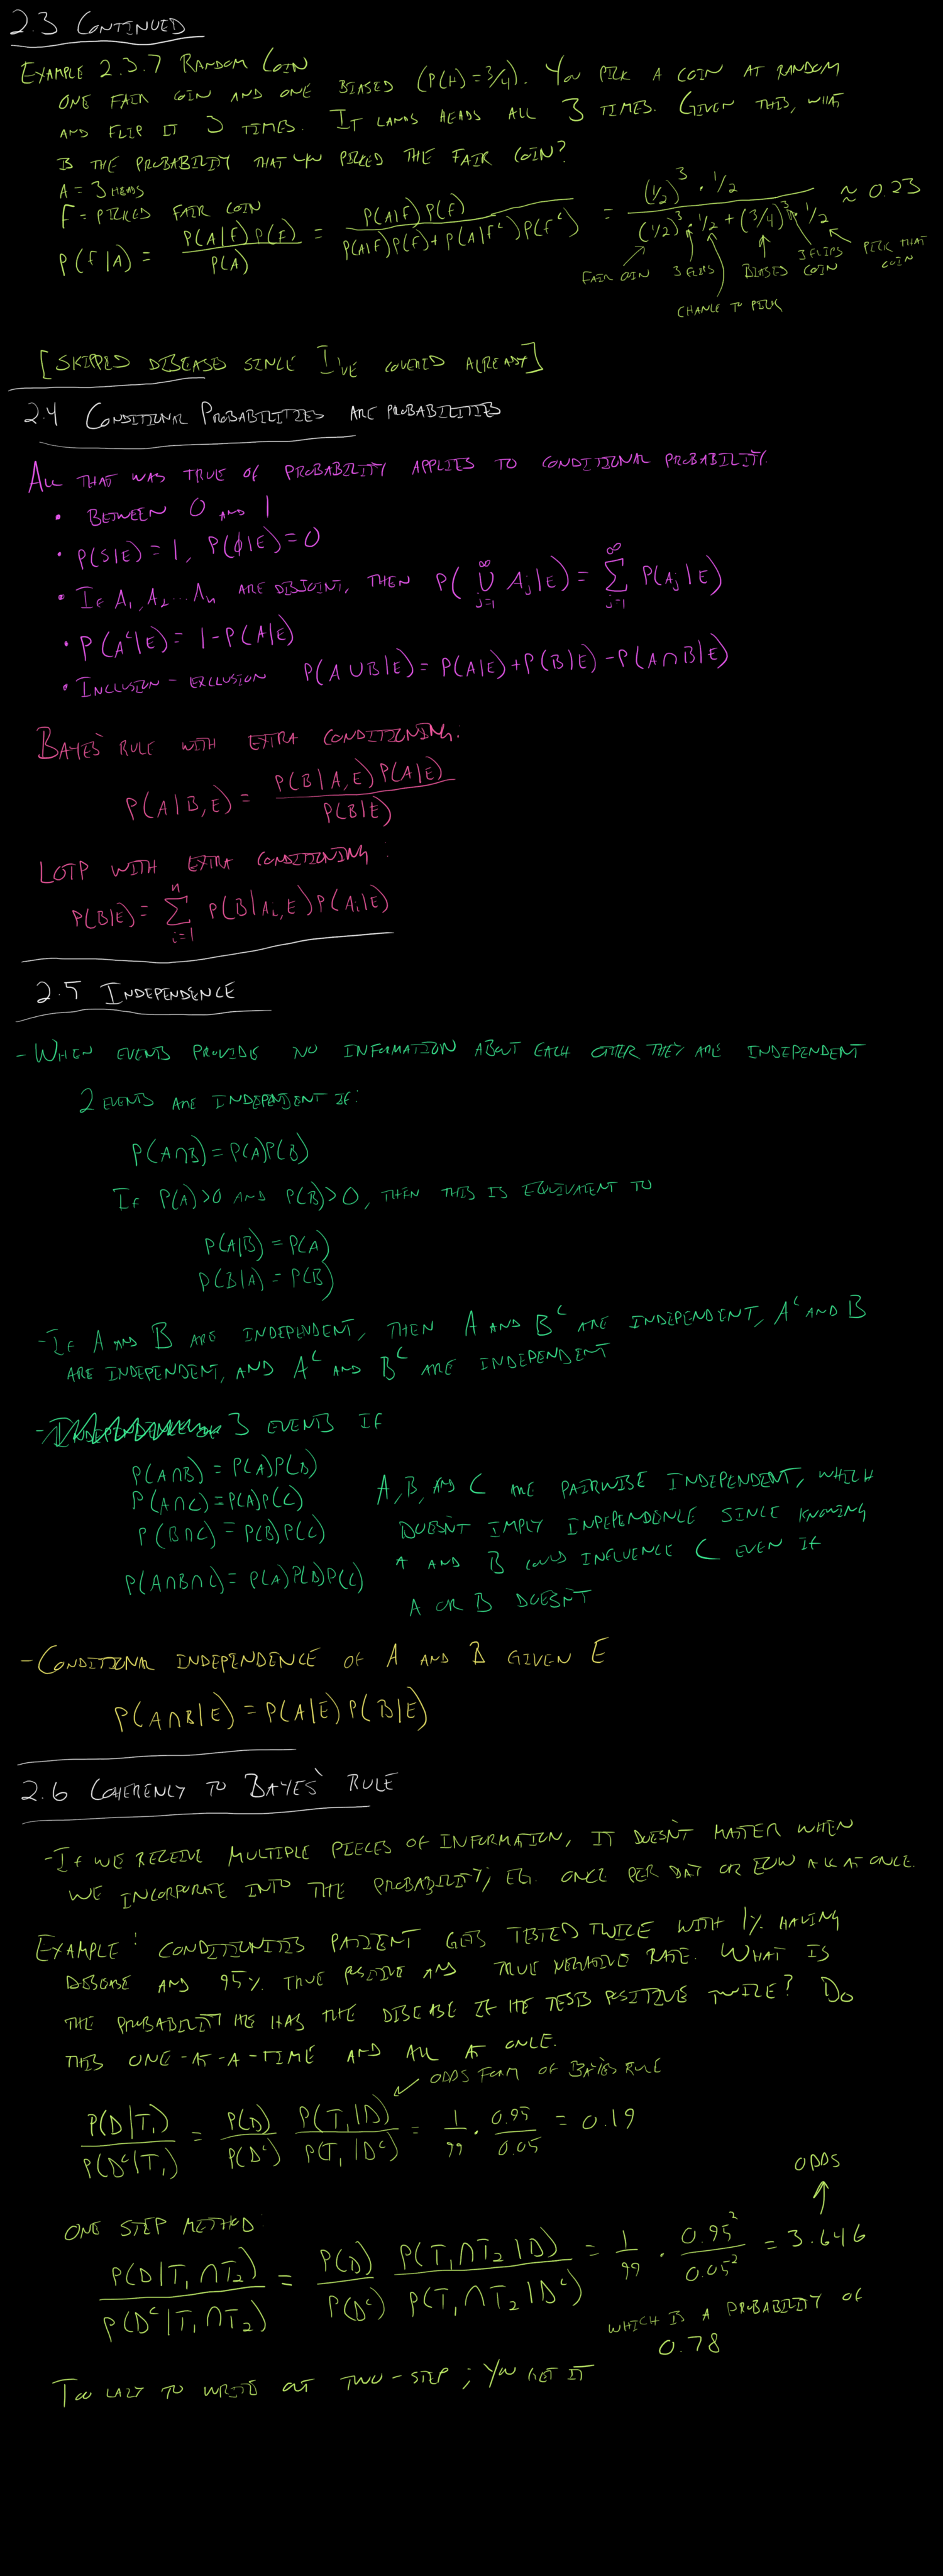 2.3 CONTINUED
EXAMPLE 2.3.7 RANDOM COIN
ONE FAIR COIN AND ONE BIASED (P(H) = 3/4). YOU PICK A COIN AT RANDOM
AND FLIP IT 3 TIMES. IT LANDS HEADS ALL 3 TIMES. GIVEN THIS, WHAT
IS THE PROBABILITY THAT YOU PICKED THE FAIR COIN?
A = 3 HEADS
F = PICKED FAIR COIN
P(F|A) = P(A|F)P(F) / P(A) = P(A|F)P(F) / (P(A|F)P(F) + P(A|F^c)P(F^c)) = (1/2)^3 · 1/2 / ((1/2)^3 · 1/2 + (3/4)^3 · 1/2) ≈ 0.23
FAIR COIN 3 FLIPS BIASED COIN 3 FLIPS PICK THAT COIN
CHANCE TO PICK
[SKIPPED DISEASE SINCE I'VE COVERED ALREADY]
2.4 CONDITIONAL PROBABILITIES ARE PROBABILITIES
ALL THAT WAS TRUE OF PROBABILITY APPLIES TO CONDITIONAL PROBABILITY.
• BETWEEN 0 AND 1
• P(S|E) = 1, P(∅|E) = 0
• IF A₁, A₂ ... Aₙ ARE DISJOINT, THEN P(⋃_{j=1}^∞ A_j|E) = ∑_{j=1}^∞ P(A_j|E)
• P(A^c|E) = 1 - P(A|E)
• INCLUSION-EXCLUSION P(A∪B|E) = P(A|E) + P(B|E) - P(A∩B|E)
BAYES' RULE WITH EXTRA CONDITIONING:
P(A|B,E) = P(B|A,E)P(A|E) / P(B|E)
LOTP WITH EXTRA CONDITIONING:
P(B|E) = ∑_{i=1}^n P(B|A_i,E)P(A_i|E)
2.5 INDEPENDENCE
- WHEN EVENTS PROVIDE NO INFORMATION ABOUT EACH OTHER THEY ARE INDEPENDENT
2 EVENTS ARE INDEPENDENT IF:
P(A∩B) = P(A)P(B)
IF P(A)>0 AND P(B)>0, THEN THIS IS EQUIVALENT TO
P(A|B) = P(A)
P(B|A) = P(B)
- IF A AND B ARE INDEPENDENT, THEN A AND B^c ARE INDEPENDENT, A^c AND B
ARE INDEPENDENT, AND A^c AND B^c ARE INDEPENDENT
- 3 EVENTS IF
P(A∩B) = P(A)P(B)
P(A∩C) = P(A)P(C)
P(B∩C) = P(B)P(C)
P(A∩B∩C) = P(A)P(B)P(C)
A, B, AND C ARE PAIRWISE INDEPENDENT, WHICH
DOESN'T IMPLY INDEPENDENCE SINCE KNOWING
A AND B COULD INFLUENCE C EVEN IF
A OR B DOESN'T
- CONDITIONAL INDEPENDENCE OF A AND B GIVEN E
P(A∩B|E) = P(A|E)P(B|E)
2.6 COHERENCY TO BAYES' RULE
- IF WE RECEIVE MULTIPLE PIECES OF INFORMATION, IT DOESN'T MATTER WHEN
WE INCORPORATE INTO THE PROBABILITY; EG. ONCE PER DAY OR ALL AT ONCE.
EXAMPLE: CONDITIONITIS PATIENT GETS TESTED TWICE WITH 1% HAVING
DISEASE AND 95% TRUE POSITIVE AND TRUE NEGATIVE RATE. WHAT IS
THE PROBABILITY HE HAS THE DISEASE IF HE TESTS POSITIVE TWICE? DO
THIS ONE-AT-A-TIME AND ALL AT ONCE.
ODDS FORM OF BAYES RULE
P(D|T₁) / P(D^c|T₁) = P(D) / P(D^c) P(T₁|D) / P(T₁|D^c) = 1/99 · 0.95/0.05 = 0.19
ODDS
ONE STEP METHOD:
P(D|T₁∩T₂) / P(D^c|T₁∩T₂) = P(D) / P(D^c) P(T₁∩T₂|D) / P(T₁∩T₂|D^c) = 1/99 · 0.95²/0.05² = 3.646
WHICH IS A PROBABILITY OF
0.78
TOO LAZY TO WRITE OUT TWO-STEP; YOU GET IT